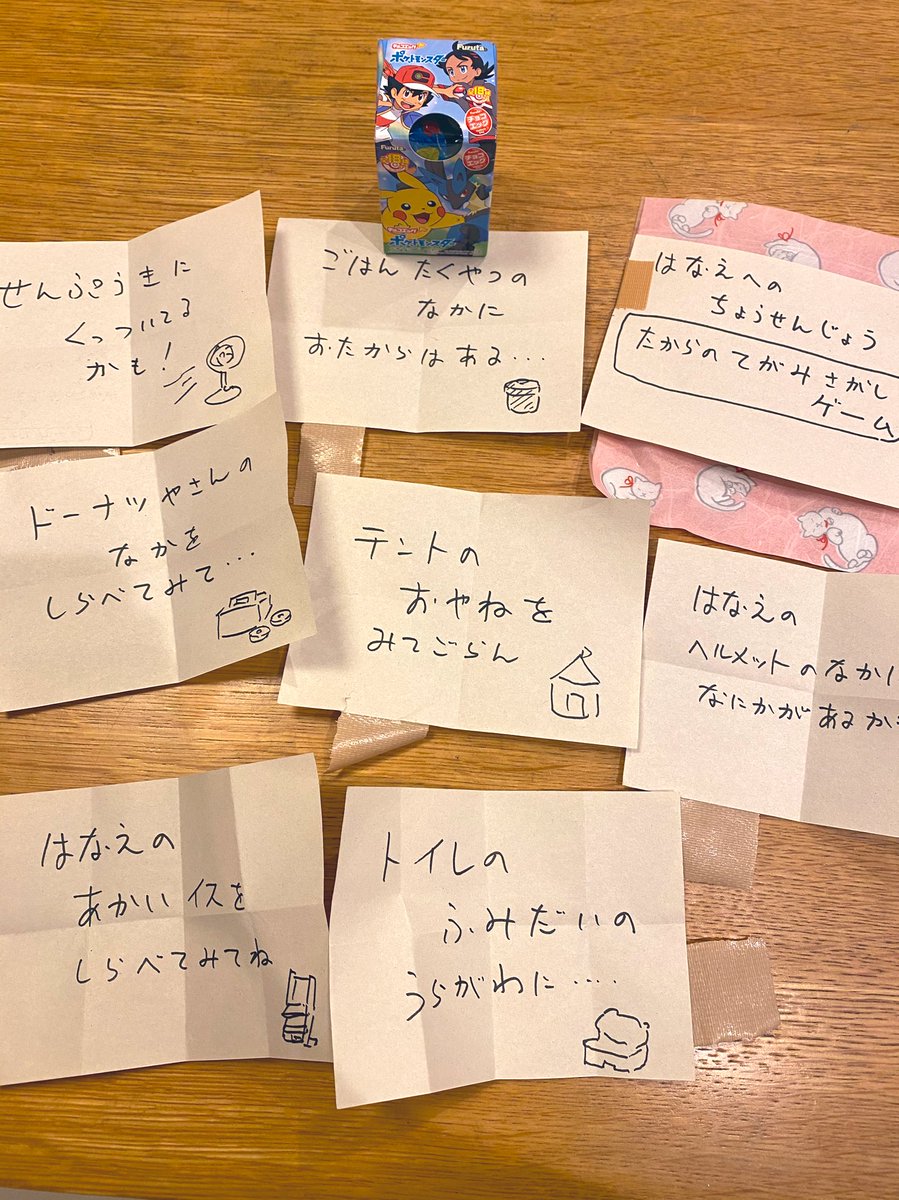 Furuta
チョコエッグ
ポケットモンスター
チョコエッグ
Furuta
チョコエッグ
ポケットモンスター
せんぷうきに
くっついてる
かも!
ごはんたくやつの
なかに
おたからはある...
はなえへの
ちょうせんじょう
たからのてがみさがし
ゲーム
ドーナツやさんの
なかを
しらべてみて...
テントの
おやねを
みてごらん
はなえの
ヘルメットのなかに
なにかがあるか
はなえの
あかいイスを
しらべてみてね
トイレの
ふみだいの
うらがわに....